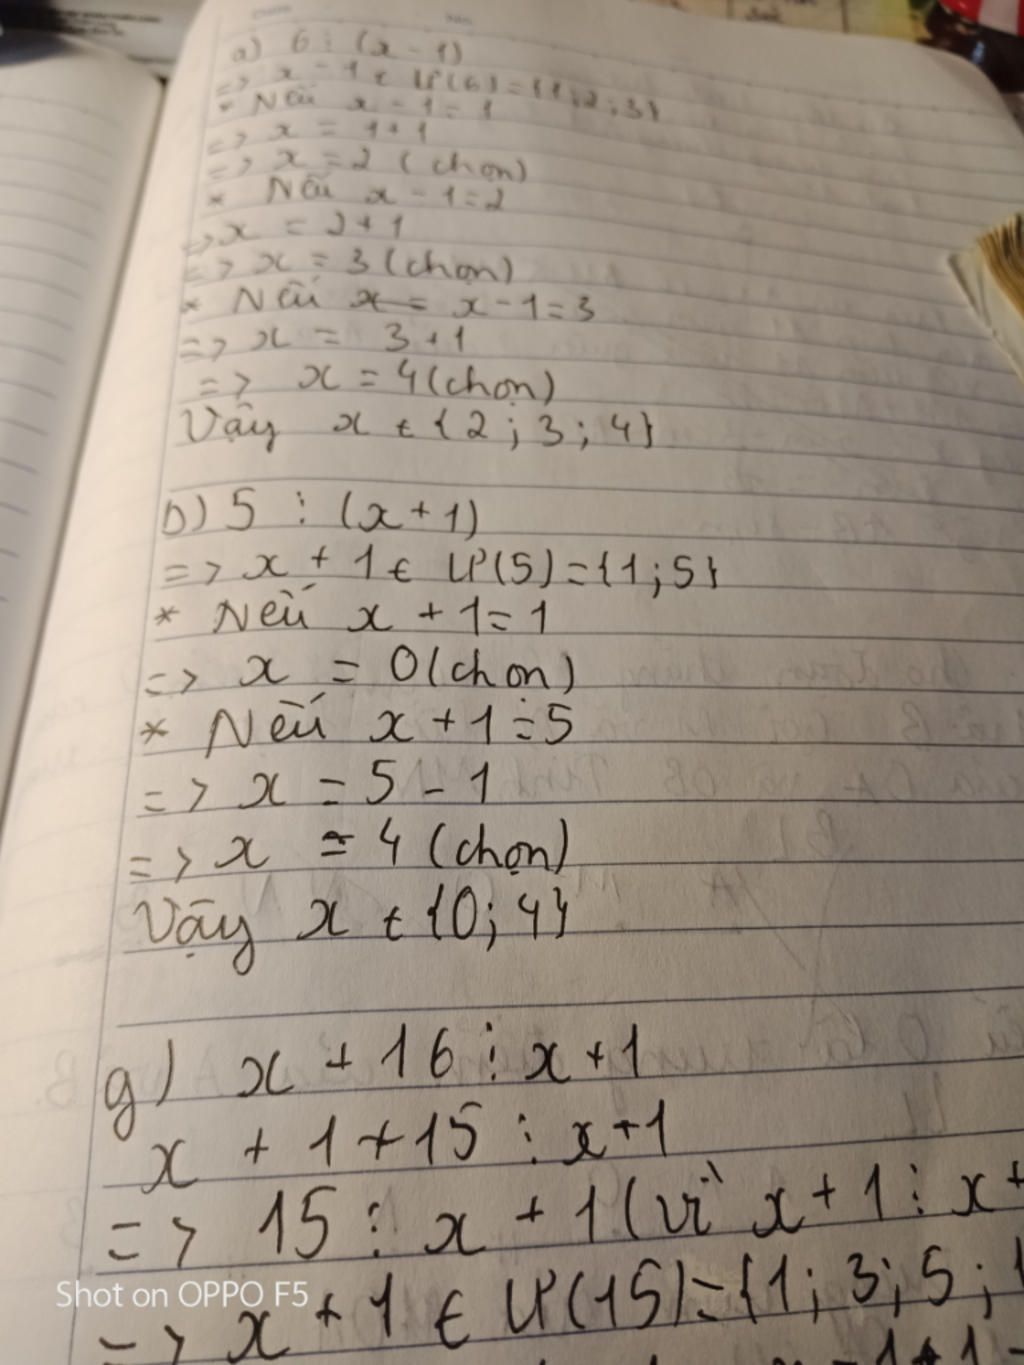 a) 6 ⋮ (x - 1)
=> x - 1 ∈ Ư(6) = {1; 2; 3}
* Nếu x - 1 = 1
=> x = 1 + 1
=> x = 2 (chọn)
* Nếu x - 1 = 2
=> x = 2 + 1
=> x = 3 (chọn)
* Nếu x = x - 1 = 3
=> x = 3 + 1
=> x = 4 (chọn)
Vậy x ∈ {2; 3; 4}
b) 5 ⋮ (x + 1)
=> x + 1 ∈ Ư(5) = {1; 5}
* Nếu x + 1 = 1
=> x = 0 (chọn)
* Nếu x + 1 = 5
=> x = 5 - 1
=> x = 4 (chọn)
Vậy x ∈ {0; 4}
g) x + 16 ⋮ x + 1
x + 1 + 15 ⋮ x + 1
=> 15 ⋮ x + 1 (vì x + 1 ⋮ x +
=> x + 1 ∈ Ư(15) = {1; 3; 5; 1
Shot on OPPO F5